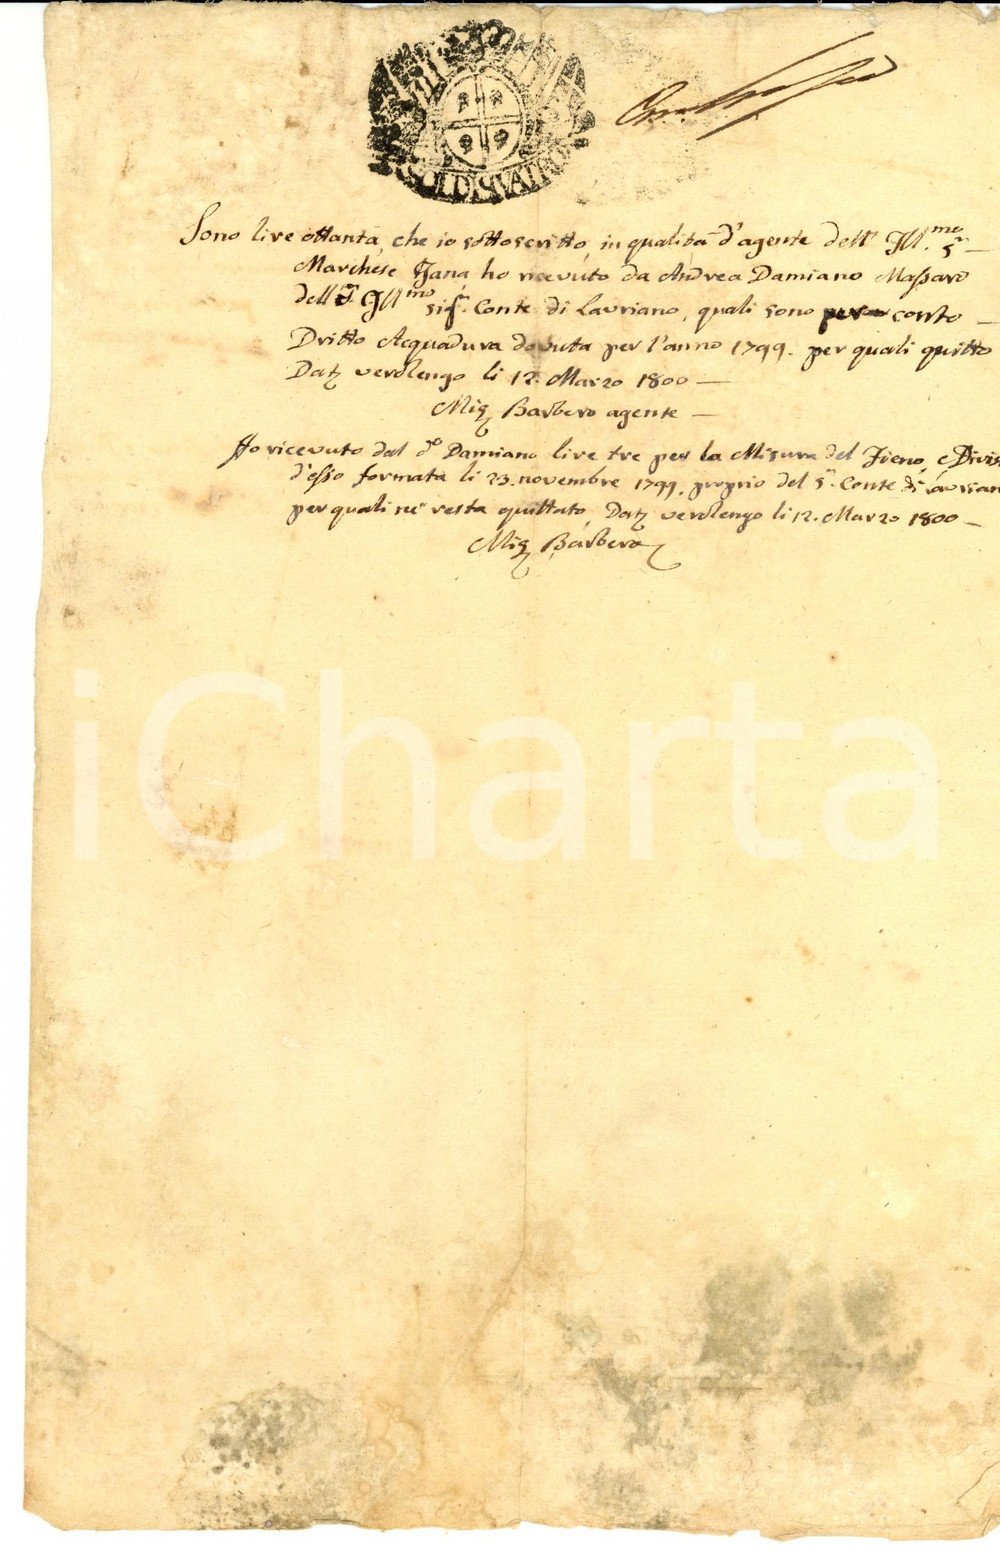 SOLDI QVATRO
Sono lire ottanta, che io sottoscritto, in qualità d'agente dell' Ill.mo Sr
Marchese Fana, ho ricevuto da Andrea Damiano Massaro
dell' Ill.mo sig. Conte di Lauriano, quali sono per conto
Dritto Acquadura dovuta per l'anno 1799. per quali quitto
Dat. verolengo li 12. Marzo 1800
Mig. Barbero agente
Ho ricevuto dal do Damiano lire tre per la Misura del Fieno, e Divis
d'esso formata li 23. novembre 1799. proprio del Sr. Conte di Laurian
per quali ne resta quittato, Dat. verolengo li 12. Marzo 1800
Mig. Barbero
iCharta